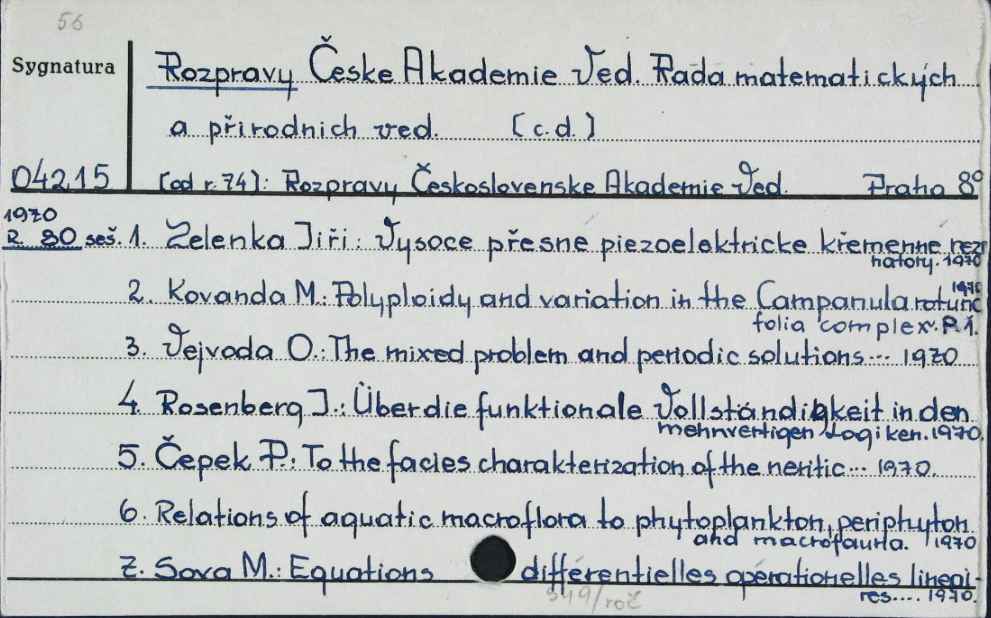 56
Sygnatura
Rozpravy Česke Akademie Věd. Rada matematických
a přirodnich ved. [c.d.]
04215 [od r. 74]: Rozpravy Československe Akademie Věd. Praha 8°
1970
R. 80 seš. 1. Zelenka Jiři: Vysoce přesne piezoelektricke křemenne rezo
natory. 1970
2. Kovanda M.: Polyploidy and variation in the Campanula rotund
1970
folia complex. P. 1.
3. Vejvoda O.: The mixed problem and periodic solutions... 1970
4. Rosenberg J.: Über die funktionale Vollständigkeit in den
mehrwertigen Logiken. 1970.
5. Čepek P.: To the facies charakterization of the neritic... 1970.
6. Relations of aquatic macroflora to phytoplankton, periphyton
and macrofauna. 1970
7. Sova M.: Equations différentielles opérationelles lineai-
res.... 1970.
949/roč